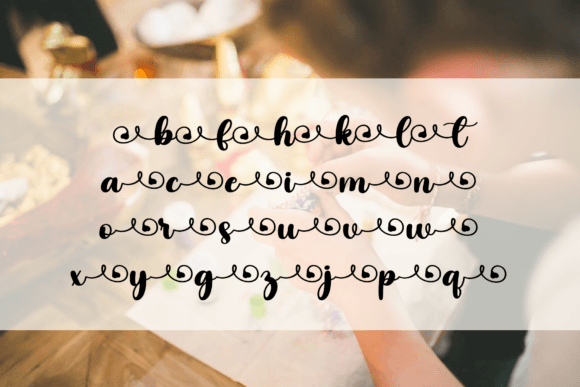 b f h k l t
a c e i m n
o r s u v w
x y g z j p q